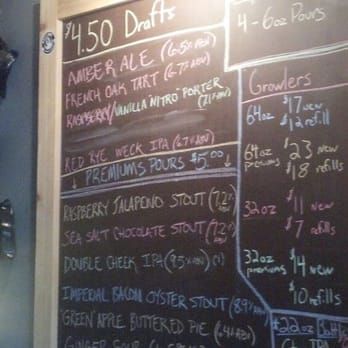 $4.50 Drafts
AMBER ALE (6.5% ABV)
FRENCH OAK TART (6.7% ABV)
RASPBERRY/VANILLA "NITRO" PORTER
(7.1% ABV)
RED RYE WECK IPA (6.7% ABV)
↓ PREMIUMS POURS $5.00 ↓
RASPBERRY JALAPENO STOUT (7.2%
SEA SALT CHOCOLATE STOUT (7.2%
DOUBLE CHEEK IPA (9.5% ABV)
IMPERIAL BACON OYSTER STOUT (8.9%
"GREEN" APPLE BUTTERED PIE (6.4% ABV)
GINGER SOUR
4-6oz Pours
Growlers
64oz $17 new
$12 refill
64oz premiums $23 new
$18 refills
32oz $11 new
$7 refills
32oz premiums $14 new
$10 refills
$22oz
IPA